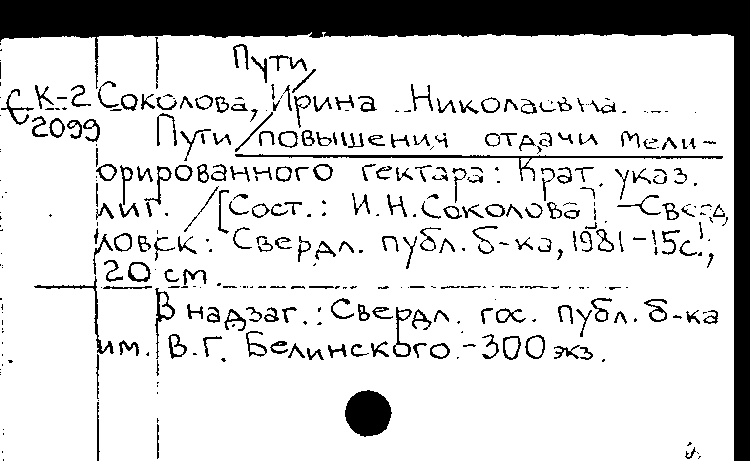 Пути
СК-2 Соколова, Ирина Николаевна.
2099 Пути повышения отдачи мели-
орированного гектара: Крат. указ.
лит. / [Сост.: И.Н.Соколова]. - Сверд
ловск: Свердл. публ. б-ка, 1981 - 15с.;
20 см.
В надзаг.: Свердл. гос. публ. б-ка
им. В.Г. Белинского. - 300 экз.